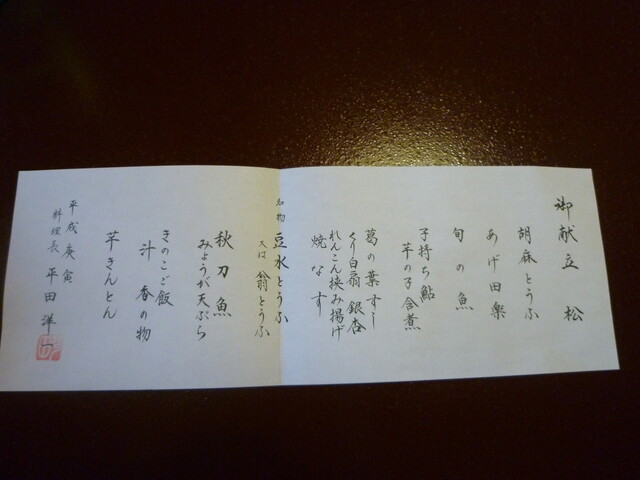 御献立 松
胡麻とうふ
あげ田楽
旬の魚
子持ち鮎
芋の子含煮
葛の葉すし
くり白扇 銀杏
れんこん挟み揚げ
焼なす
名物 豆水とうふ
又は 翁とうふ
秋刀魚
みょうが天ぷら
きのこご飯
汁 香の物
芋きんとん
平成庚寅
料理長 平田洋一